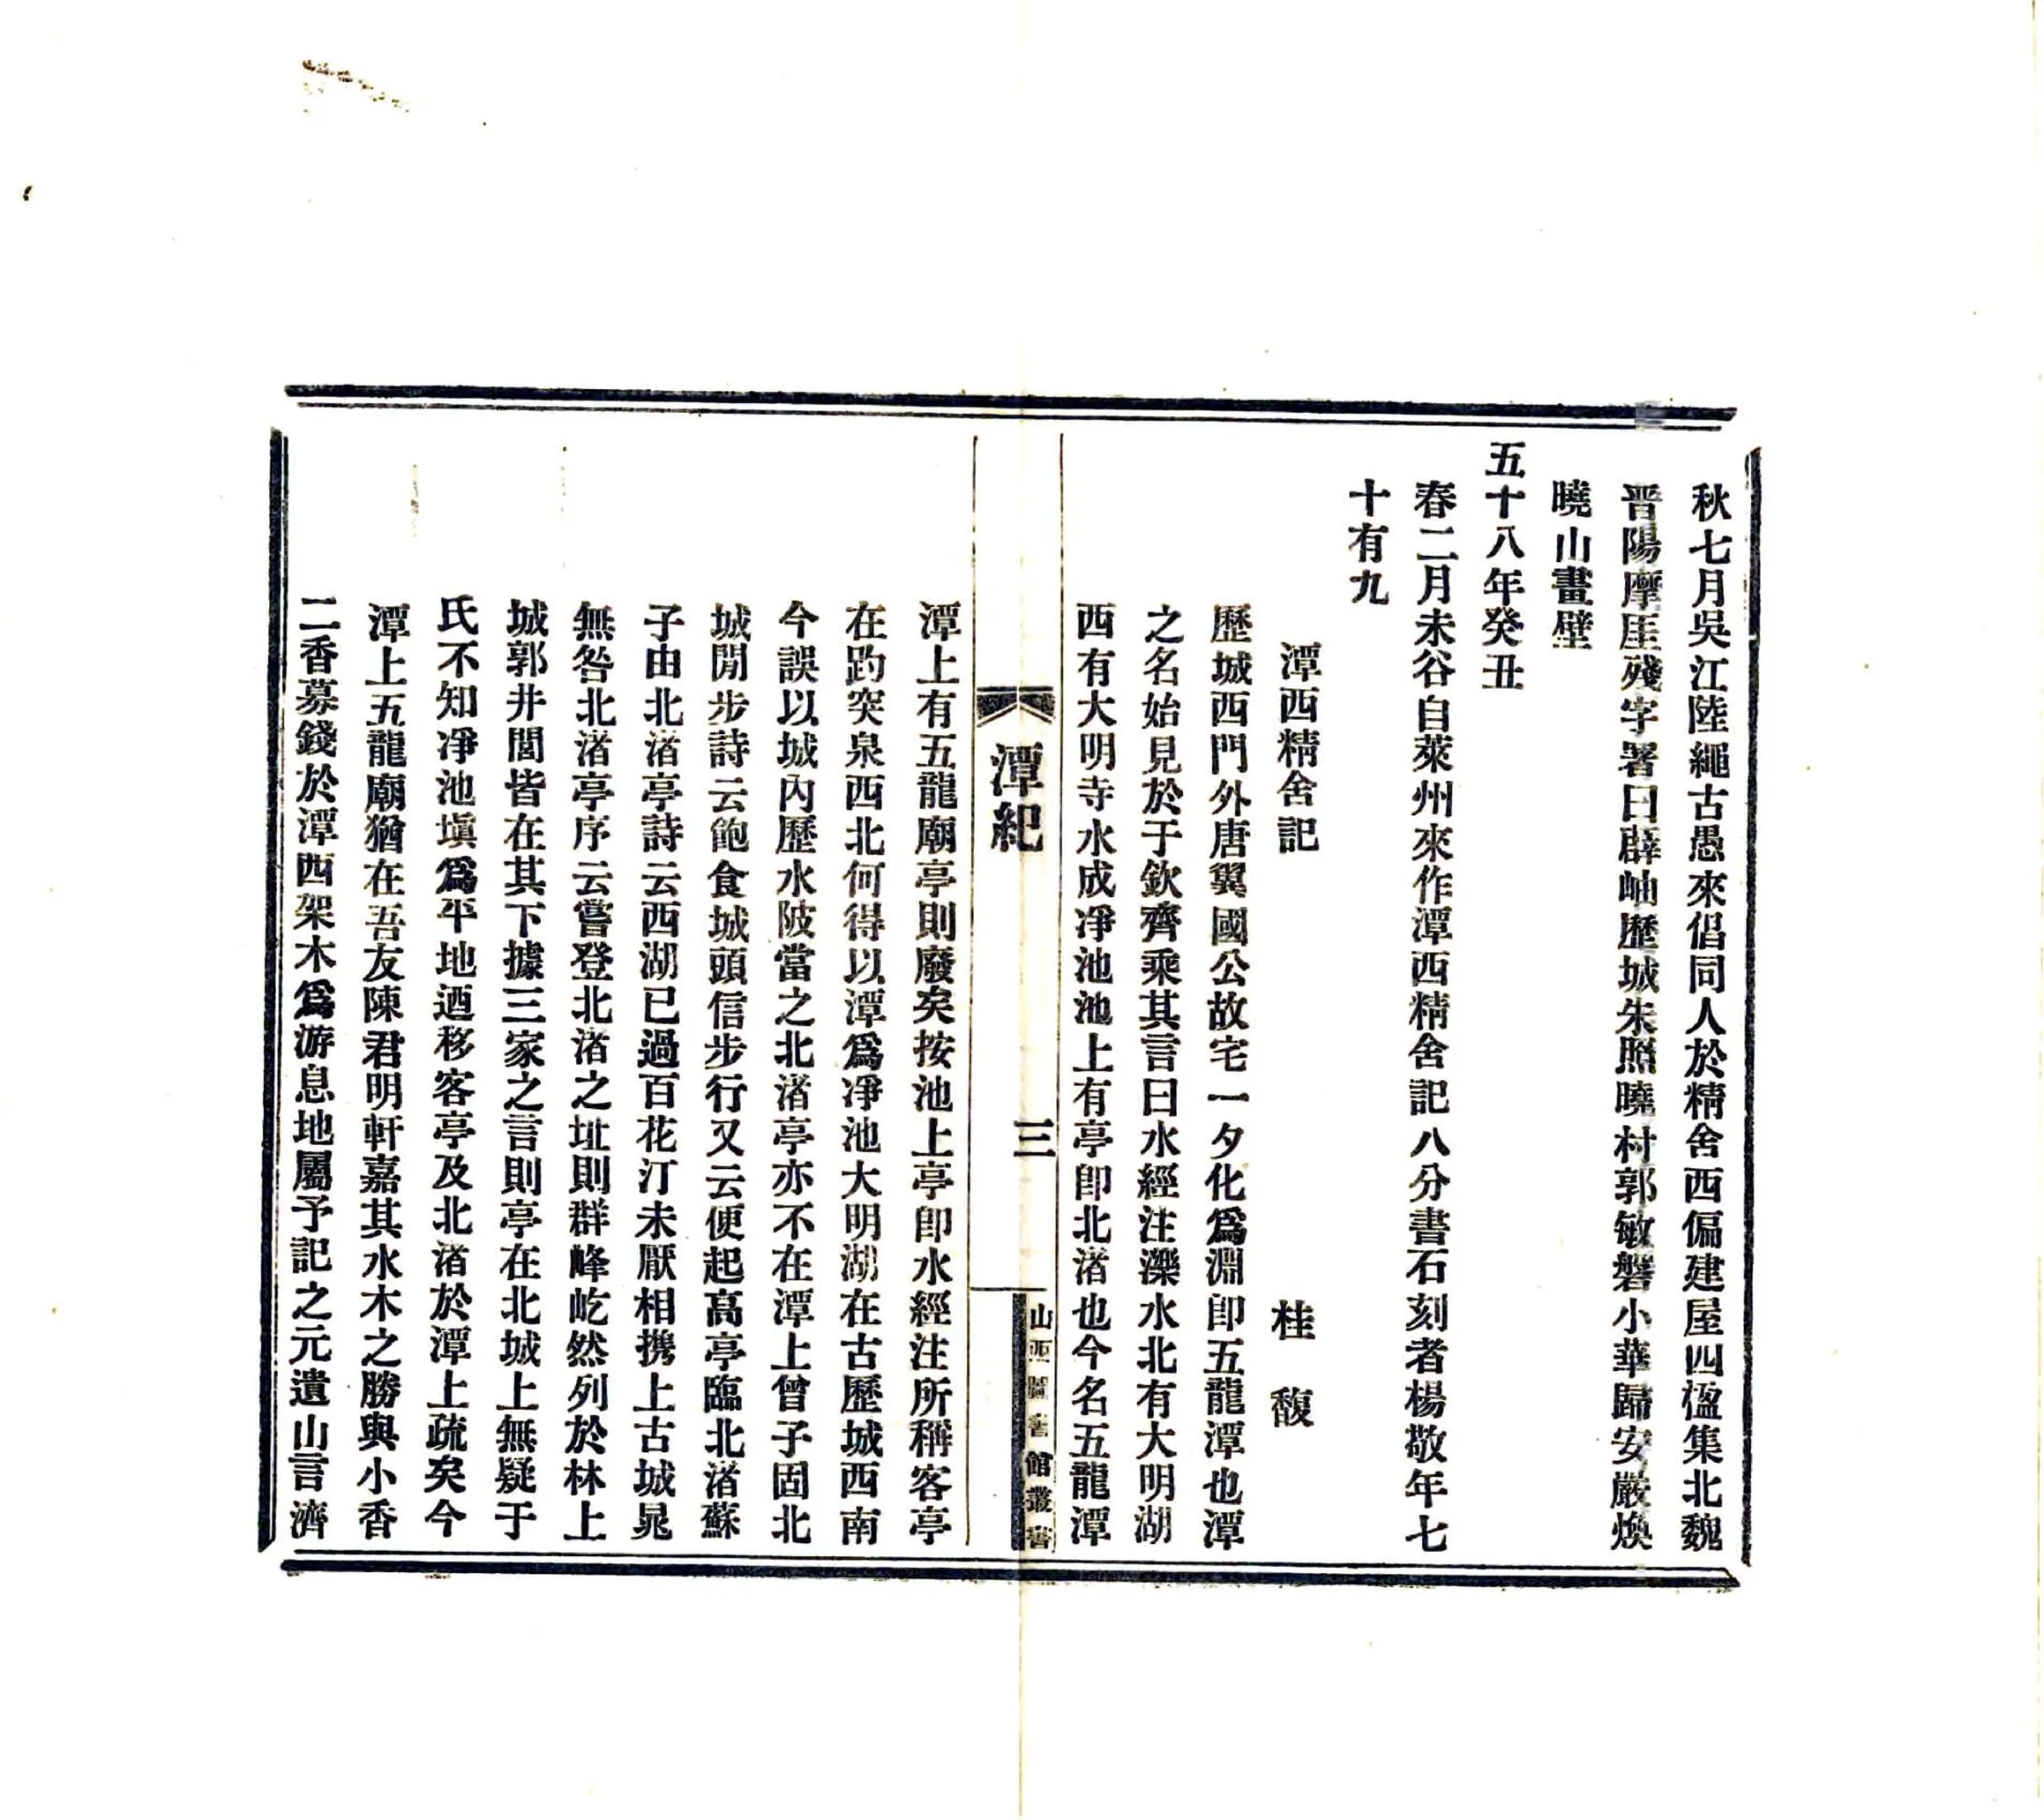 秋七月吳江陸繩古愚來倡同人於精舍西偏建屋四楹集北魏
晋陽摩厓殘字署曰薜岫歷城朱照曉村郭敏磐小華歸安嚴煥
曉山畫壁
五十八年癸丑
春二月未谷自萊州來作潭西精舍記八分書石刻者楊敬年七
十有九
潭西精舍記
桂馥
歷城西門外唐翼國公故宅一夕化爲淵卽五龍潭也潭
之名始見於于欽齊乘其言曰水經注濼水北有大明湖
西有大明寺水成凈池池上有亭卽北渚也今名五龍潭
潭紀
三
山西圖書館叢書
潭上有五龍廟亭則廢矣按池上亭卽水經注所稱客亭
在趵突泉西北何得以潭爲凈池大明湖在古歷城西南
今誤以城內歷水陂當之北渚亭亦不在潭上曾子固北
城閒步詩云飽食城頭信步行又云便起高亭臨北渚蘇
子由北渚亭詩云西湖已過百花汀未厭相携上古城晁
無咎北渚亭序云嘗登北渚之址則群峰屹然列於林上
城郭井閭皆在其下據三家之言則亭在北城上無疑于
氏不知凈池塡爲平地迺移客亭及北渚於潭上疏矣今
潭上五龍廟猶在吾友陳君明軒嘉其水木之勝與小香
二香募錢於潭西架木爲游息地屬予記之元遺山言濟